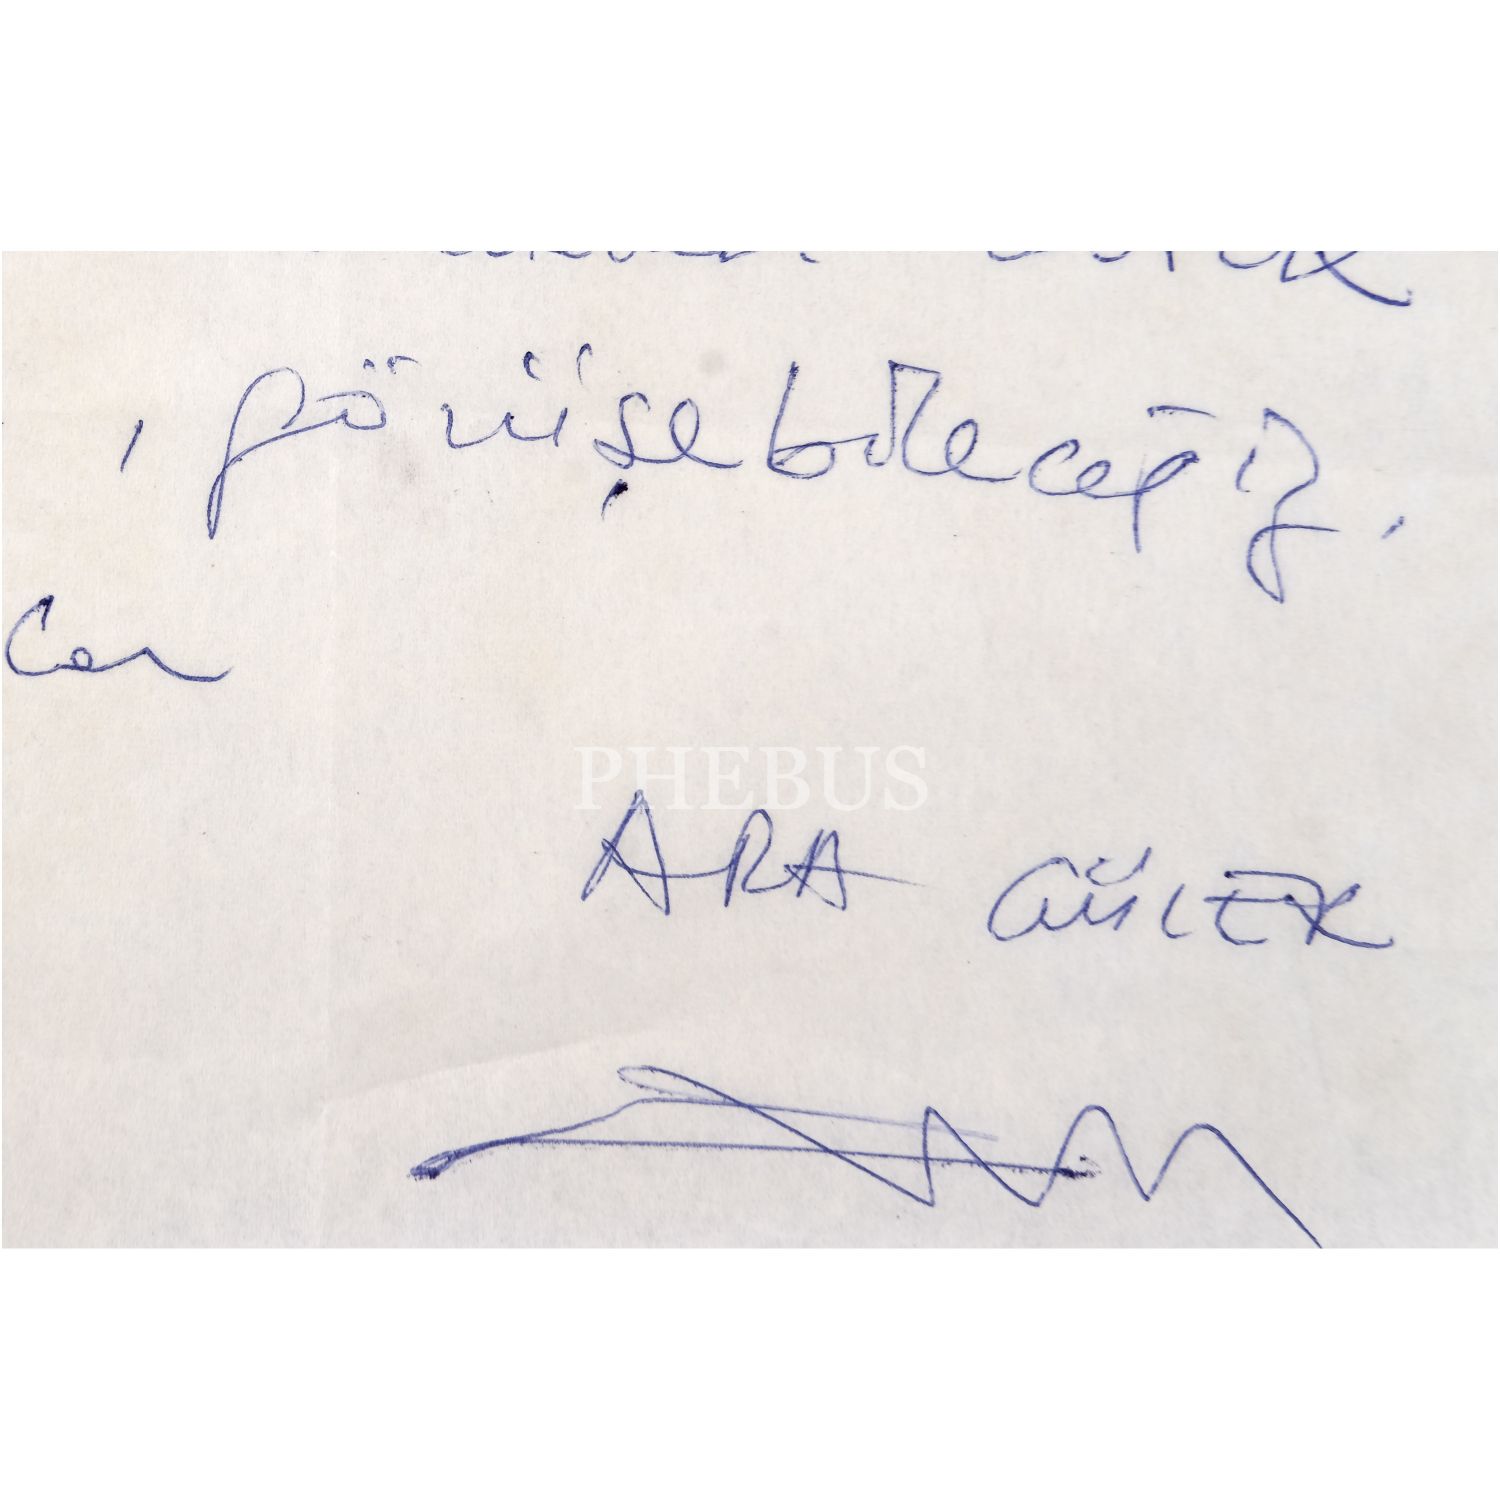 , görüşebileceğiz.
Can
PHEBUS
ARA GÜLER